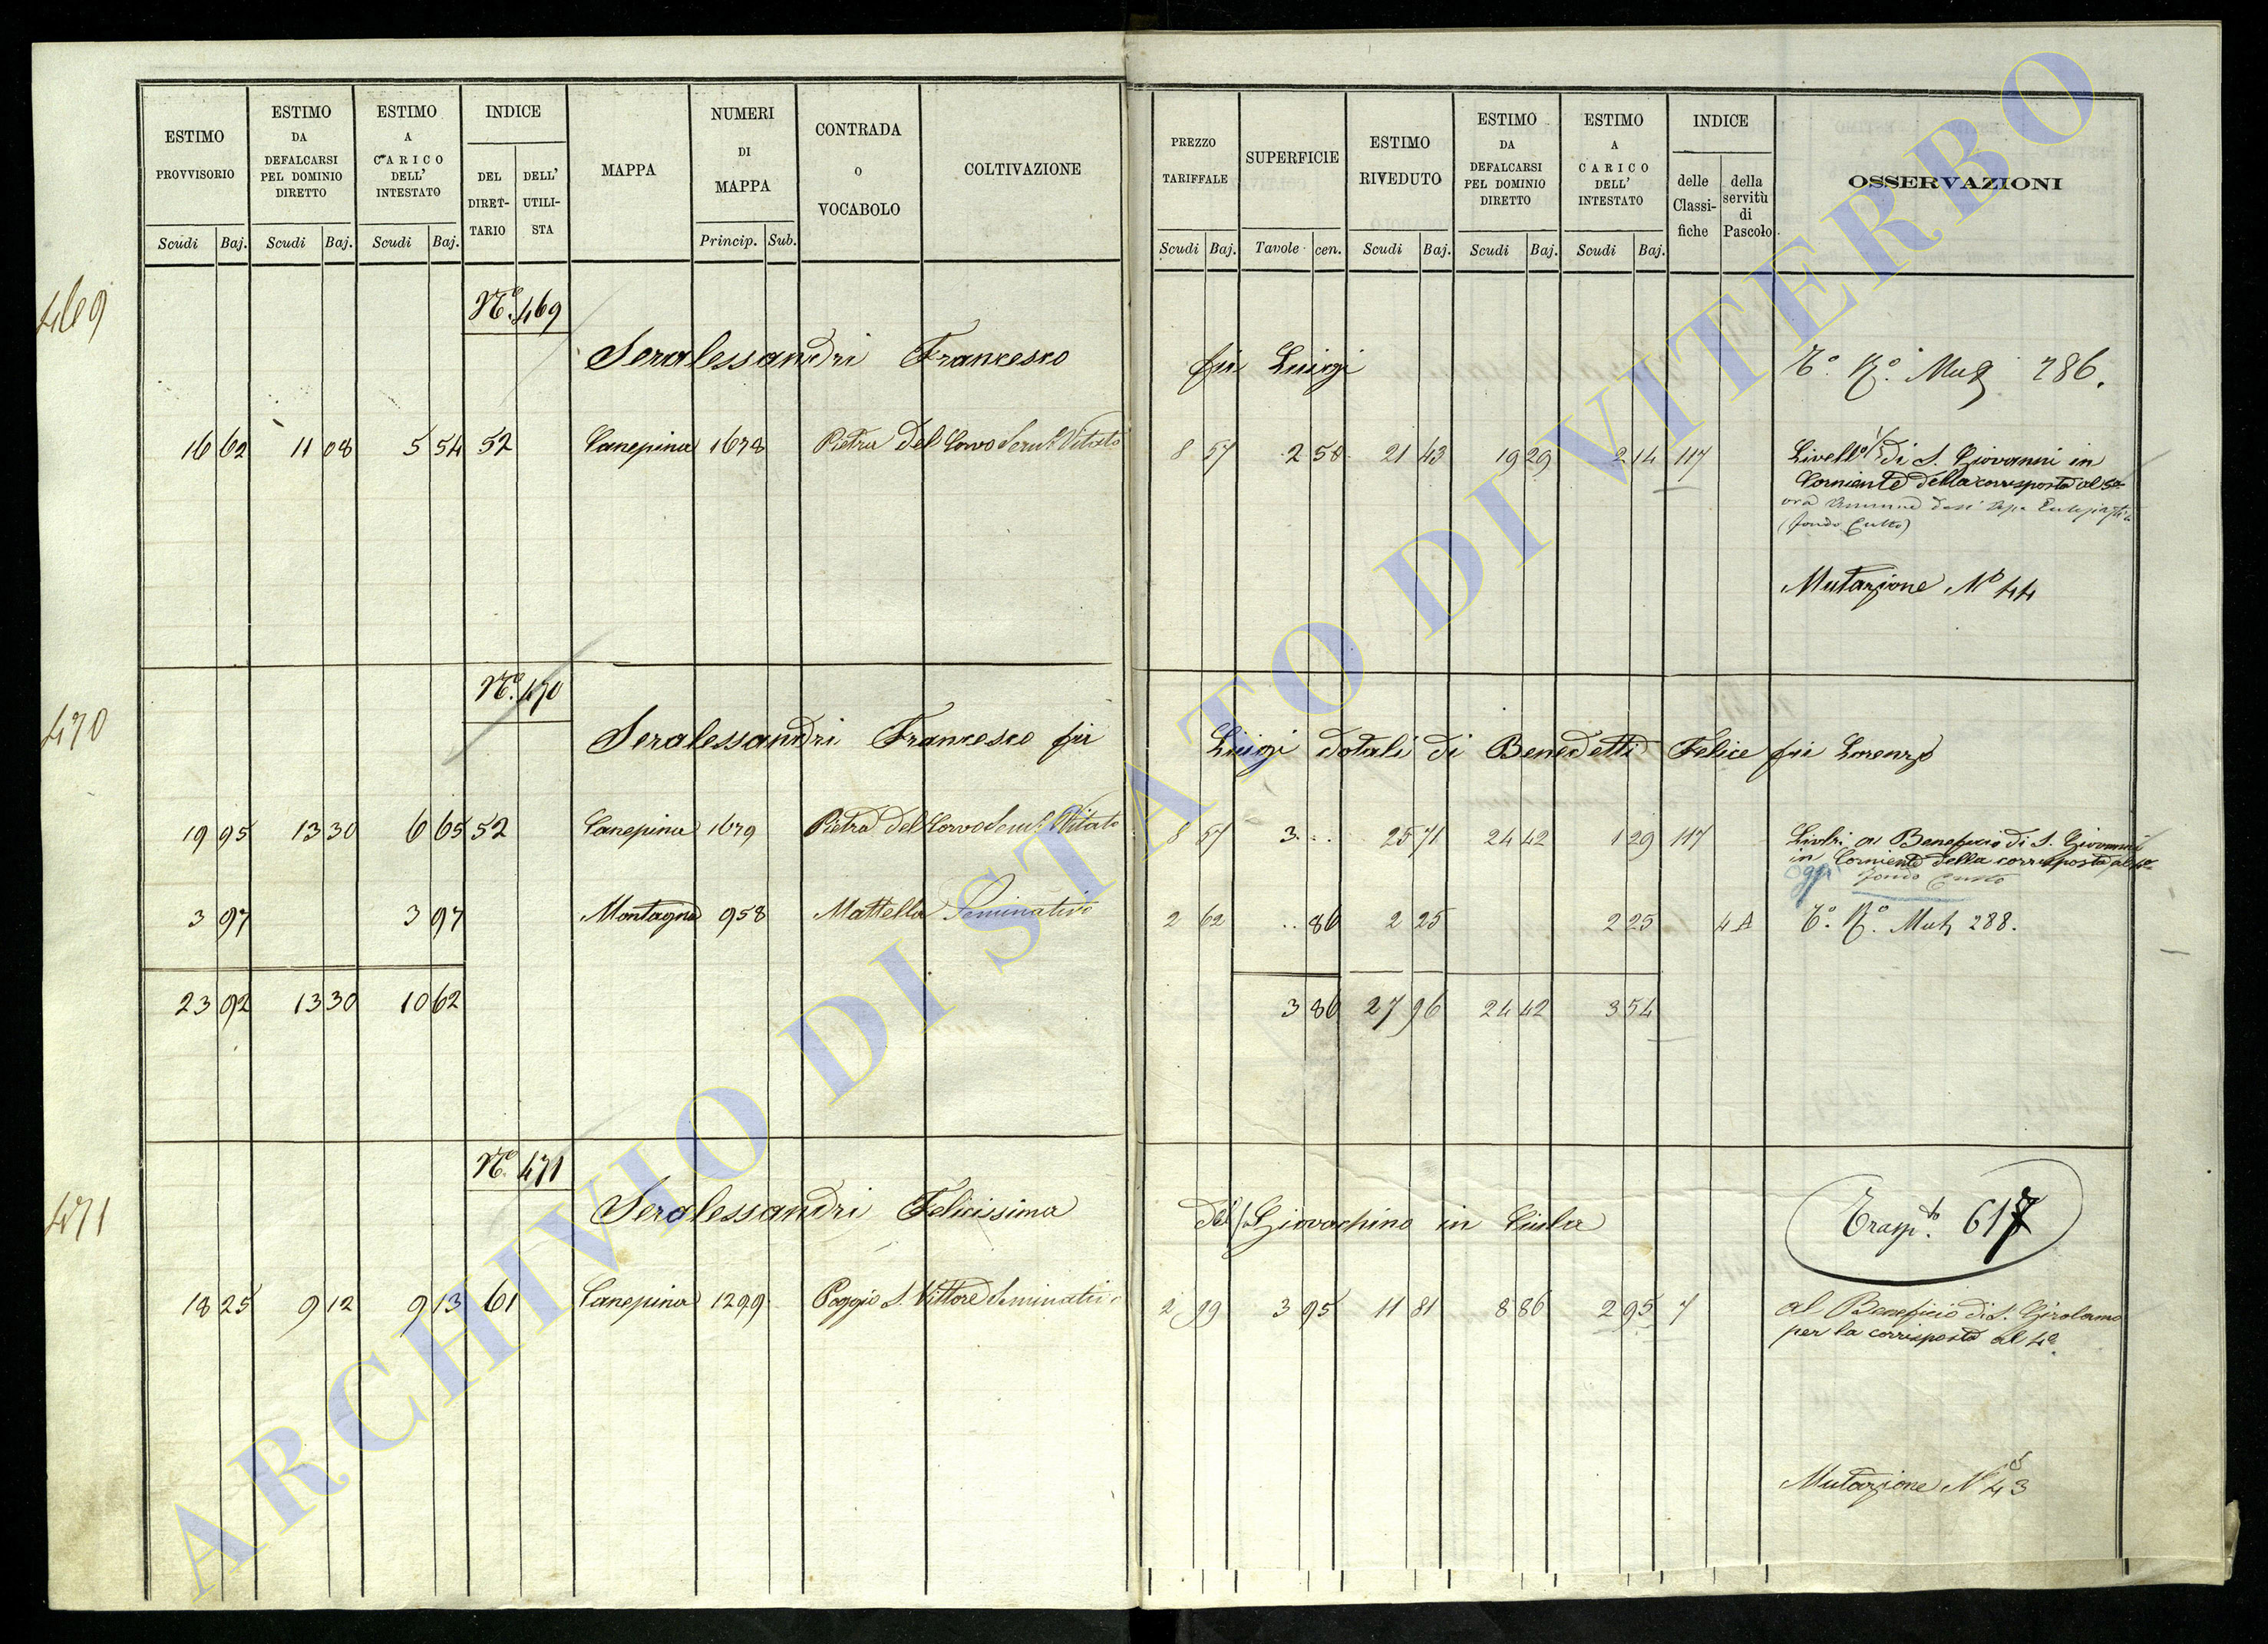 ESTIMO PROVVISORIO
ESTIMO DA DEFALCARSI PEL DOMINIO DIRETTO
ESTIMO A CARICO DELL' INTESTATO
INDICE
DEL DIRETTARIO
DELL' UTILISTA
MAPPA
NUMERI DI MAPPA
CONTRADA o VOCABOLO
COLTIVAZIONE
PREZZO TARIFFALE
SUPERFICIE
ESTIMO RIVEDUTO
ESTIMO DA DEFALCARSI PEL DOMINIO DIRETTO
ESTIMO A CARICO DELL' INTESTATO
INDICE
delle Classifiche
della servitù di Pascolo
OSSERVAZIONI
Scudi Baj. Scudi Baj. Scudi Baj. Princip. Sub. Scudi Baj. Tavole cen. Scudi Baj. Scudi Baj. Scudi Baj.
469
N.º 469
Seralessandri Francesco fu Luigi
286.
16 62 11 08 5 54 52 Canepina 1678 Pietra del Corvo Vitato 8 57 2 58 21 43 19 29 2 14 117
Livello di S. Giovanni in
Corniente della corrisposta al
(fondo Culto)
Mutazione Nº 44
470
N.º 470
Seralessandri Francesco fu Luigi dotali di Benedetti Felice fu Lorenzo
19 95 13 30 6 65 52 Canepina 1679 Pietra del Corvo Vitato 8 57 3 .. 25 71 24 42 1 29 117
Beneficio di S. Giovanni
in Corniente della corrisposta al
Oggi fondo Culto
3 97 3 97 Montagna 958 Mattella Seminativo 2 62 .. 86 2 25 2 25 4 A
288.
23 92 13 30 10 62 3 86 27 96 24 42 3 54
471
N.º 471
Seralessandri Felicissima del Giovachino in Ciula
Trasp.to 617
18 25 9 12 9 13 61 Canepina 1299 Poggio S. Vittore Seminativo 2 99 3 95 11 81 8 86 2 95 7
al Beneficio di S. Girolamo
per la corrisposta al 4º.
Mutazione Nº 43
ARCHIVIO DI STATO DI VITERBO